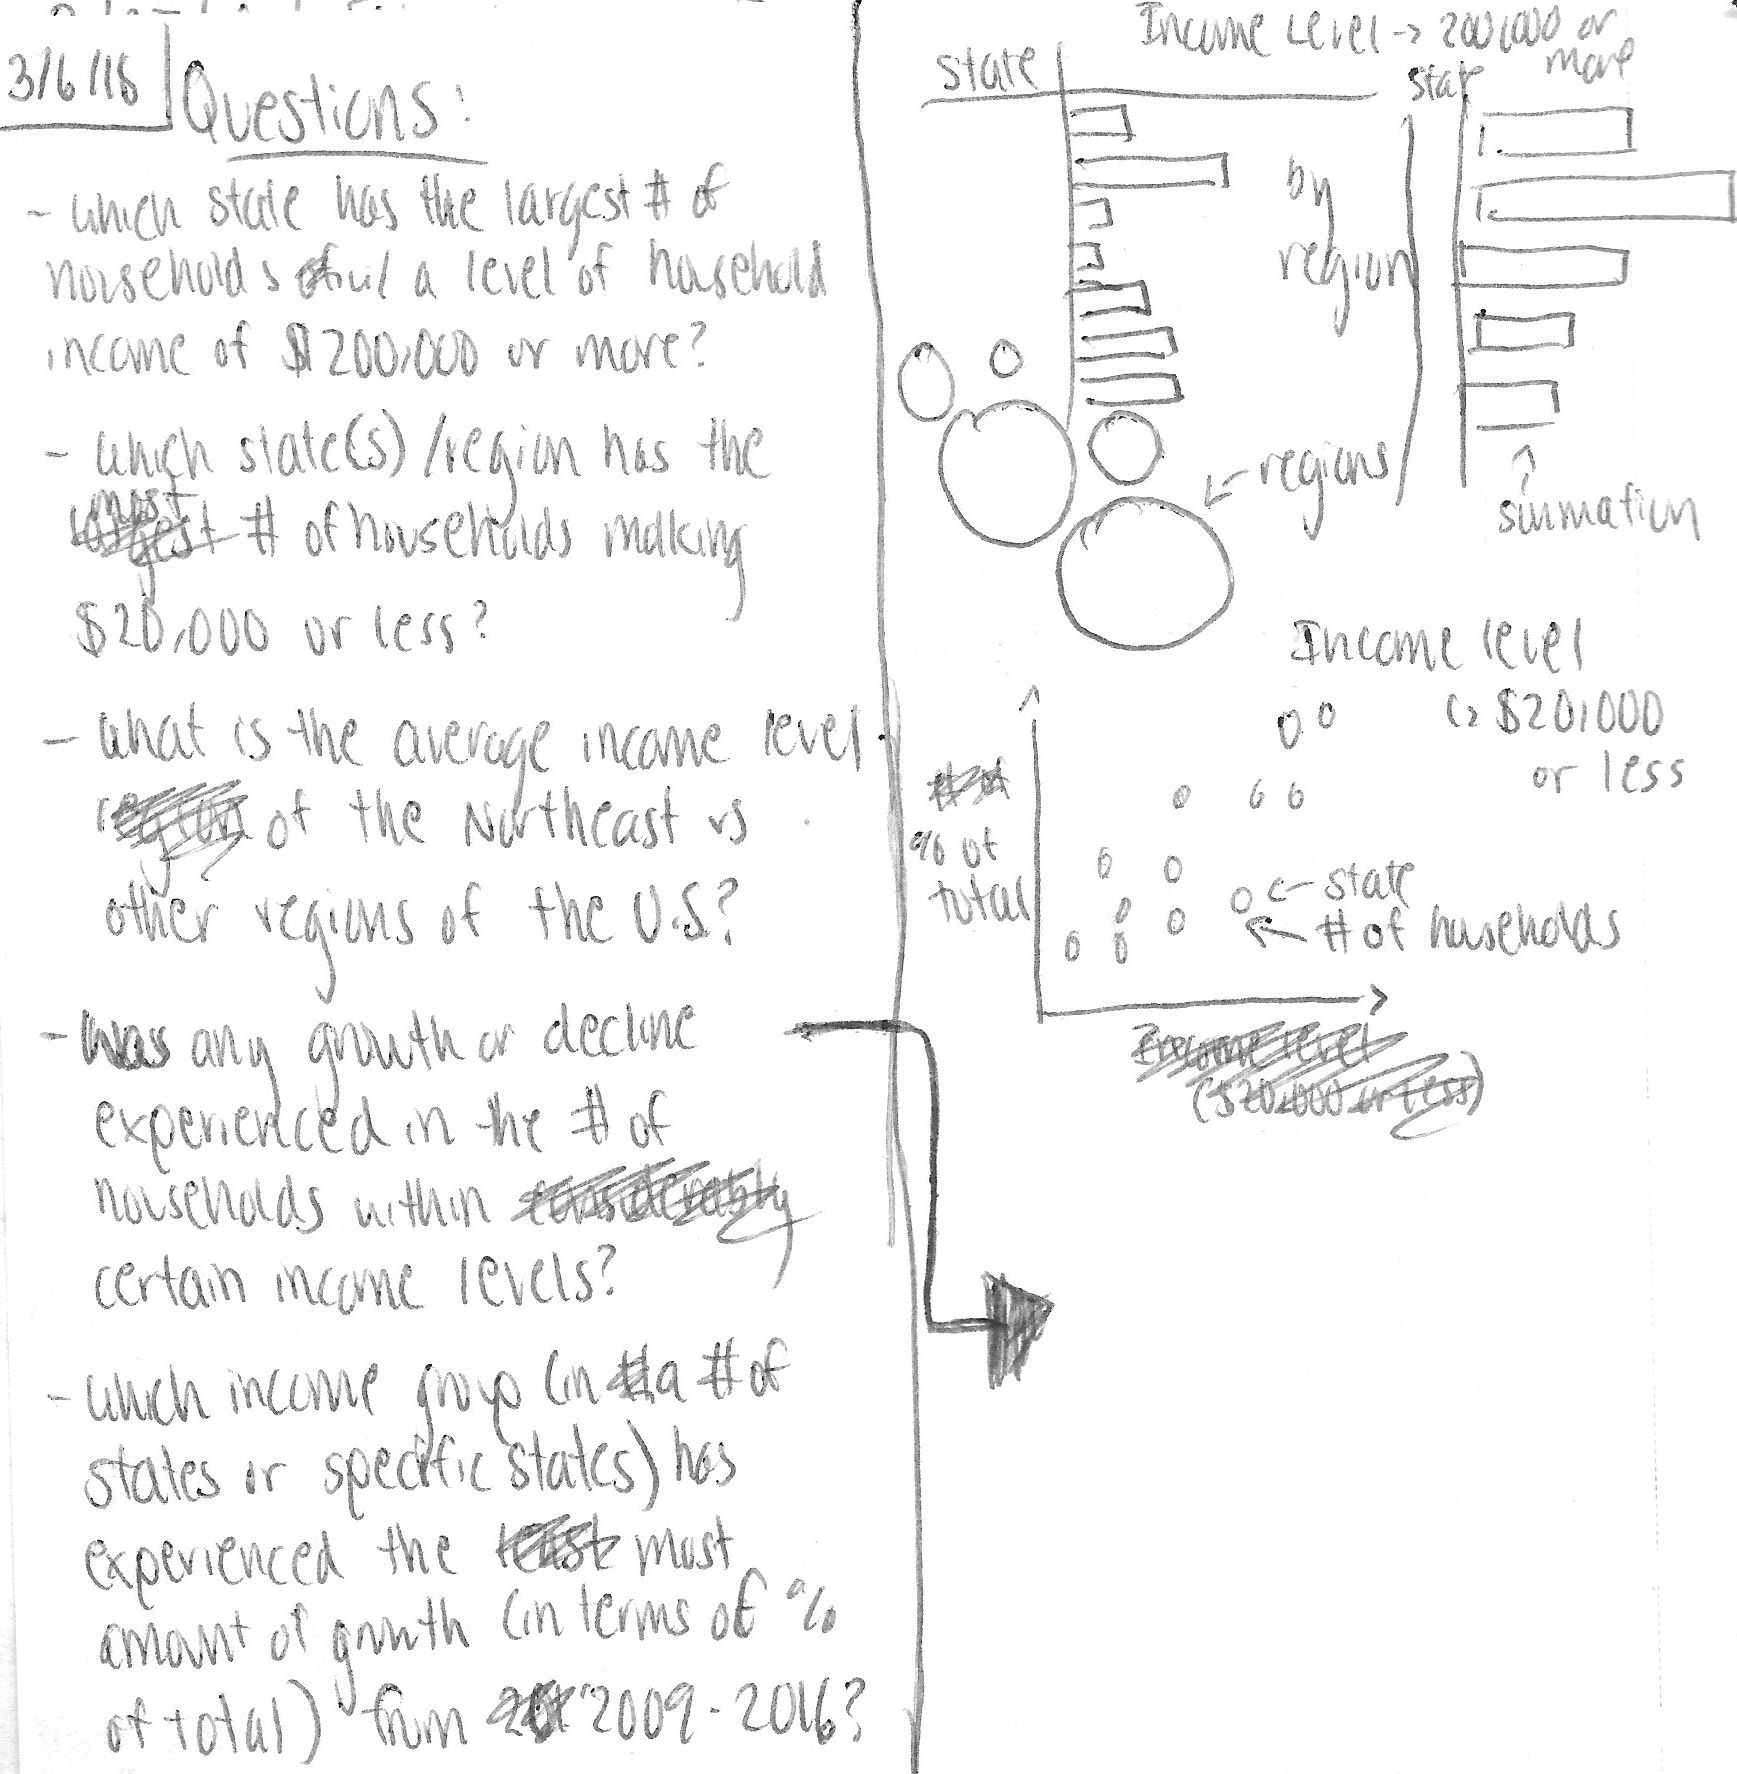 3/6/18
Questions:
- which state has the largest # of
households w/ a level of household
income of $200,000 or more?
- which state(s)/region has the
most
largest # of households making
$20,000 or less?
- what is the average income level
region of the Northeast vs
other regions of the U.S?
- was any growth or decline
experienced in the # of
households within considerably
certain income levels?
- which income group (in a # of
states or specific states) has
experienced the least most
amount of growth (in terms of %
of total) from 2009-2016?
Income Level → 200,000 or
more
state
state
by
region
← regions
↑
summation
Income level
↳ $20,000
or less
% of
total
← state
← # of households
Income level
($20,000 or less)